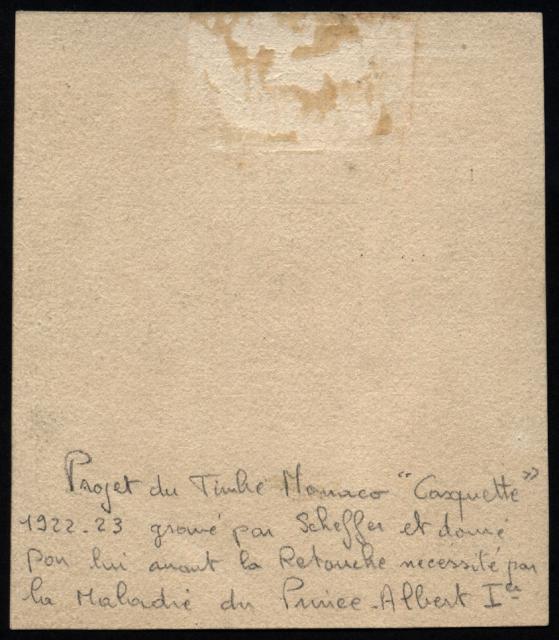 Projet du Timbre Monaco "Casquette"
1922-23 gravé par Scheffer et donné
par lui avant la Retouche necessité par
la Maladie du Prince Albert Ier